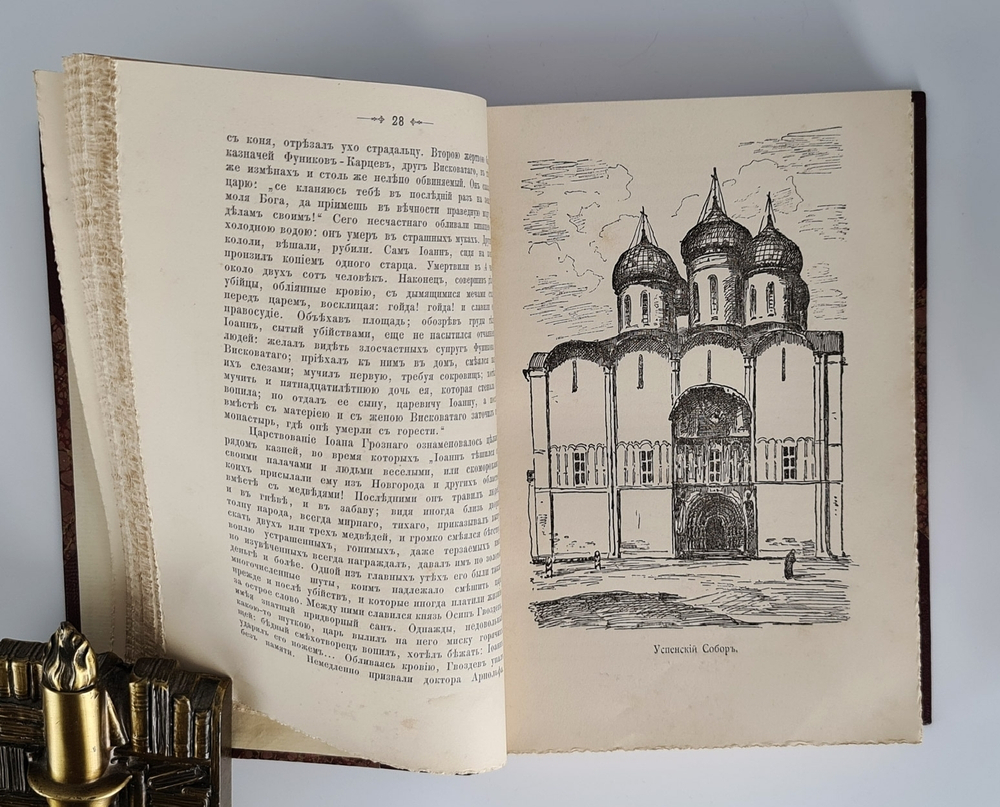 28
съ коня, отрѣзалъ ухо страдальцу. Второю жертвою
казначей Фуниковъ-Карцевъ, другъ Висковатаго, въ
же измѣнахъ и столь же нелѣпо обвиняемый. Онъ
царю: „се кланяюсь тебѣ въ послѣдній разъ на
моля Бога, да пріимешь въ вѣчности праведную
дѣламъ своимъ!“ Сего несчастнаго обливали
холодною водою: онъ умеръ въ страшныхъ мукахъ.
кололи, вѣшали, рубили. Самъ Іоаннъ, сидя на
пронзилъ копіемъ одного старца. Умертвили въ 4
около двухъ сотъ человѣкъ. Наконецъ, совершивъ
убійцы, обліянные кровію, съ дымящимися мечами
передъ царемъ, восклицая: гойда! гойда! и славили
правосудіе. Объѣхавъ площадь; обозрѣвъ груды
Іоаннъ, сытый убійствами, еще не насытился
людей: желалъ видѣть злосчастныхъ супругъ
Висковатаго; пріѣхалъ къ нимъ въ домъ, смѣялся
ихъ слезами; мучилъ первую, требуя сокровищъ;
мучить и пятнадцатилѣтнюю дочь ея, которая
вопила; но отдалъ ее сыну, царевичу Іоанну, а
вмѣстѣ съ матерію и съ женою Висковатаго
монастырь, гдѣ онѣ умерли съ горести.“
Царствованіе Іоана Грознаго ознаменовалось
рядомъ казней, во время которыхъ „Іоаннъ тѣшился
своими палачами и людьми веселыми, или
коихъ присылали ему изъ Новгорода и другихъ
вмѣстѣ съ медвѣдями! Послѣдними онъ травилъ
и въ гнѣвѣ, и въ забаву; видя иногда близъ
толпу народа, всегда мирнаго, тихаго, приказывалъ
скать двухъ или трехъ медвѣдей, и громко смѣялся
воплю устрашенныхъ, гонимыхъ, даже терзаемыхъ
но изувѣченныхъ всегда награждалъ, давалъ имъ по
деньгѣ и болѣе. Одной изъ главныхъ утѣхъ его были
многочисленные шуты, коимъ надлежало смѣшить
прежде и послѣ убійствъ, и которые иногда платили
за острое слово. Между ними славился князь Осипъ Гвоздевъ,
имѣя знатный придворный санъ. Однажды,
какою-то шуткою, царь вылилъ на него миску
щей; бѣдный смѣхотворецъ вопилъ, хотѣлъ бѣжать:
ударилъ его ножемъ... Обливаясь кровію, Гвоздевъ
безъ памяти. Немедленно призвали доктора Арнольфа.
Успенскій Соборъ.